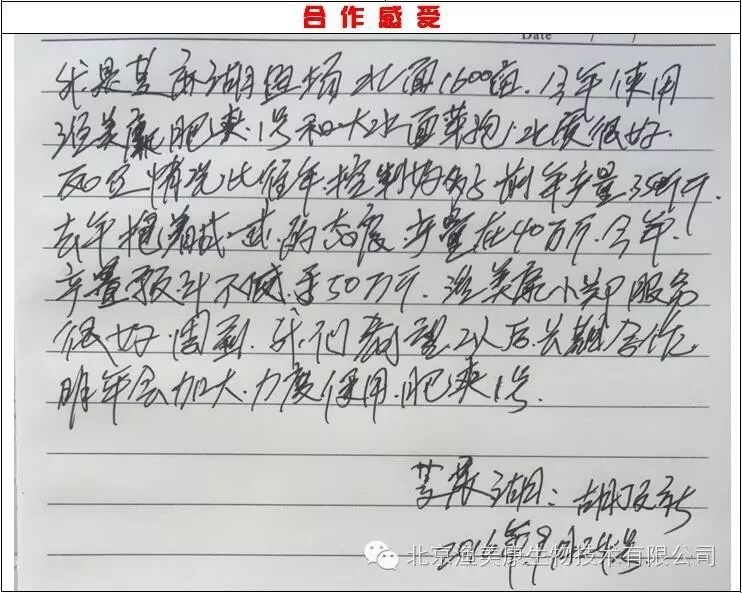 合作感受
Date / /
我是芰麻湖渔场水面1600亩.今年使用
渔美康肥爽1号和大水面草抱.水质很好.
情况比往年控制好的多前年产量35万斤
去年抱着试一试的态度.产量在40万斤.今年
产量预计不低于50万斤.渔美康小郑服务
很好周到.我们希望以后长期合作.
明年会加大力度使用.肥爽1号.
湖:胡
2016年9月 号
北京渔美康生物技术有限公司